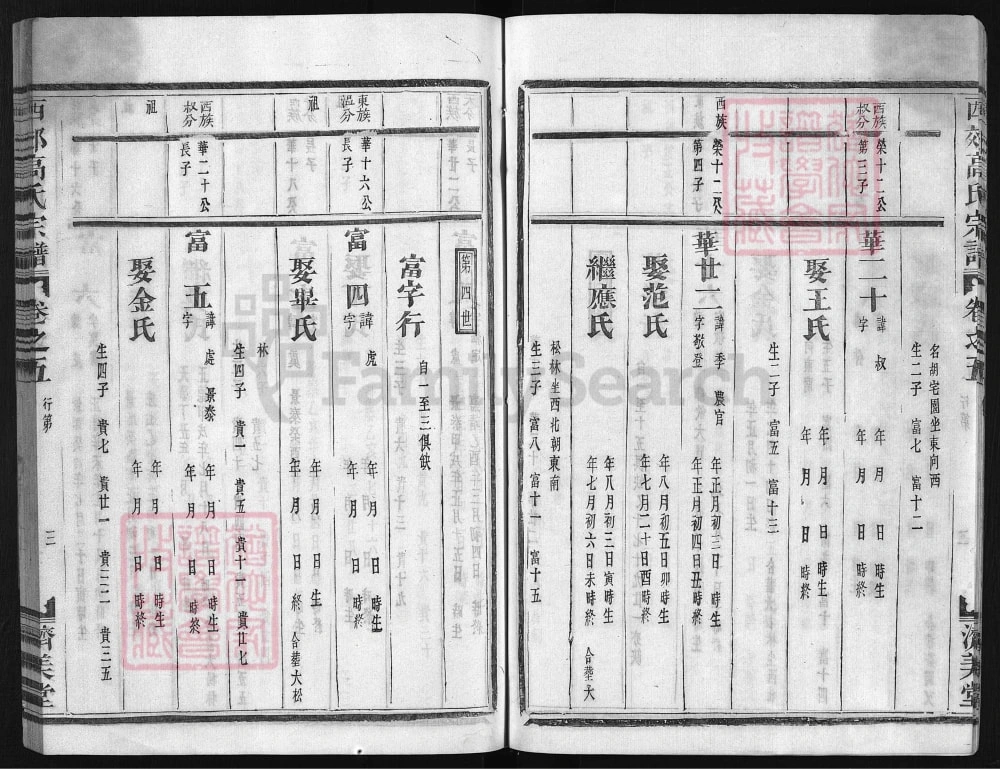 西郊高氏宗譜 卷之五 行第
濟美堂
名胡宅園坐東向西
生二子 富七 富十二
西族叔分 榮十二公第三子
華二十 諱 叔 年 月 日 時生
字 年 月 日 時終
娶王氏 年 月 日 時生
年 月 日 時終
生二子 富五 富十三
西族 榮十二公第四子
華廿二 諱 季 農官 年正月初三日 時生
字敬登 年正月初四日丑時終
娶范氏 年八月初五日卯時生
年七月二十日酉時終
繼應氏 年八月初三日寅時生
年七月初六日未時終 合葬大
松林坐西北朝東南
生三子 富八 富十一 富十五
第四世
富字行 自一至三俱缺
東族温分祖 華十六公長子
富四 諱 虎 年 月 日 時生
字 年 月 日 時終
娶畢氏 年 月 日 生
年 月 日 終 合葬大松
林
生四子 貴一 貴五 貴十一 貴廿七
西族叔分祖 華二十公長子
富五 諱 處 景泰 年 月 日 時生
字 年 月 日 時終
娶金氏 年 月 日 時生
年 月 日 時終
生四子 貴七 貴廿一 貴三二 貴三五
西郊高氏宗譜 卷之五 行第 三
濟美堂
FamilySearch